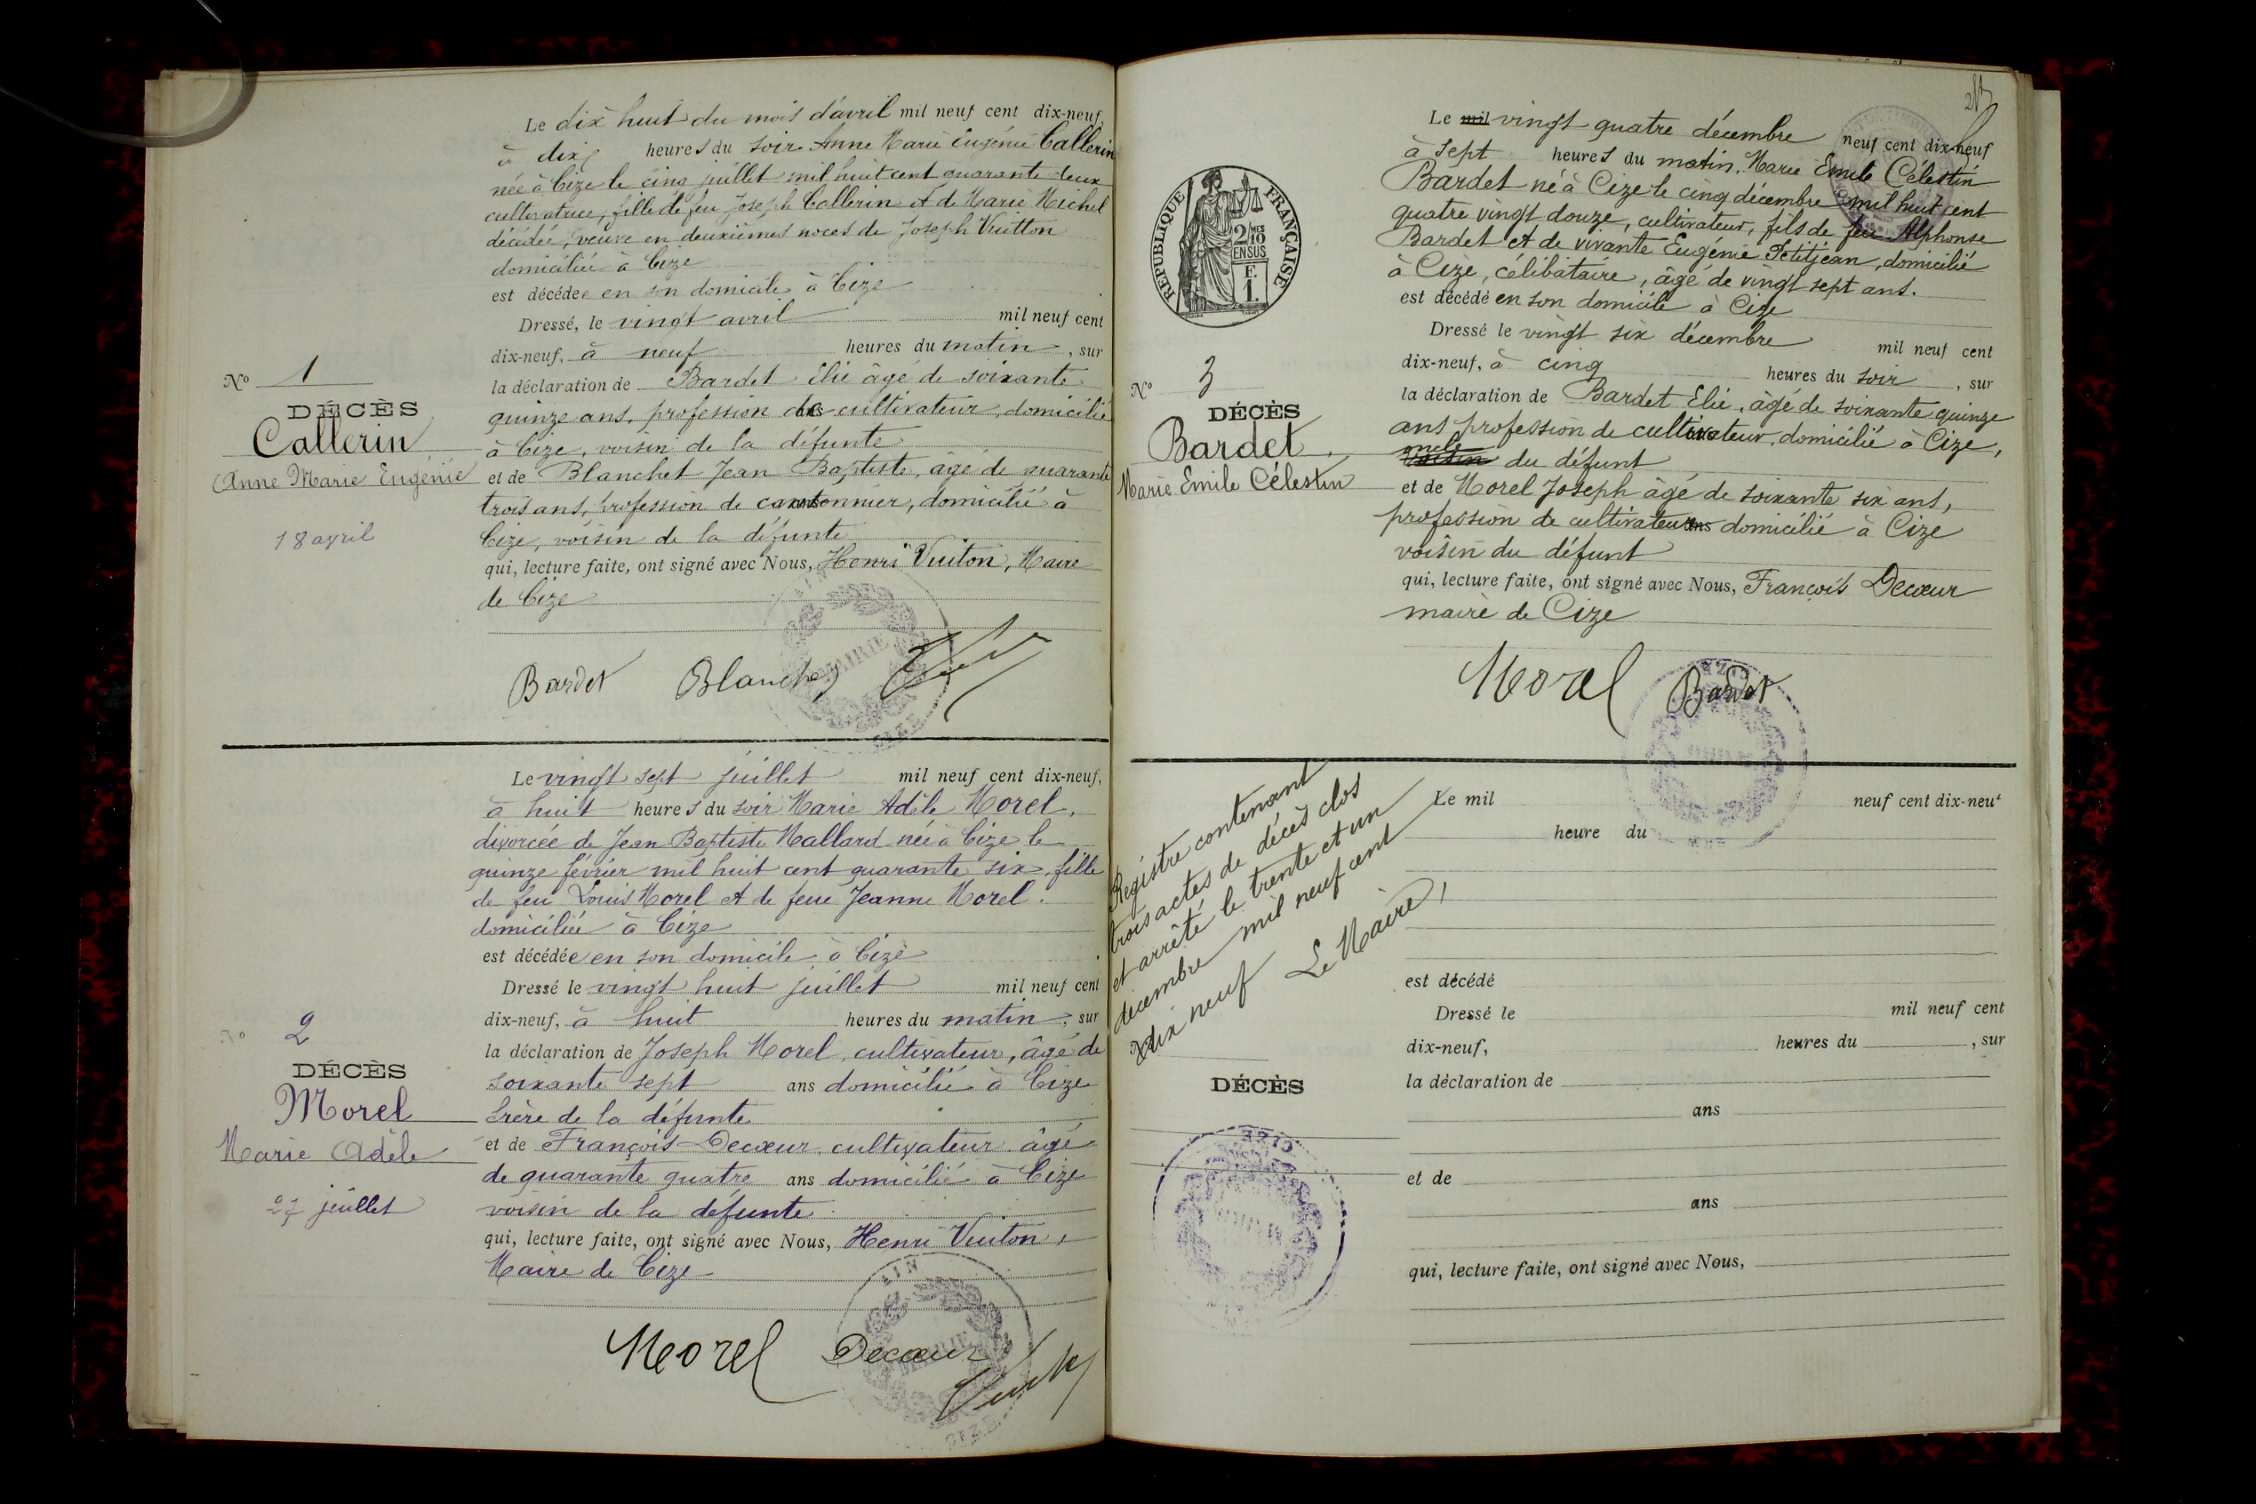 Le dix huit du mois d'avril mil neuf cent dix-neuf,
à dix heures du soir Anne Marie Eugénie Callerin
née à Cize le cinq juillet mil huit cent quarante deux
cultivatrice, fille de feu Joseph Callerin et de Marie Michel
décédée, veuve en deuxièmes noces de Joseph Vuitton
domiciliée à Cize
est décédée en son domicile à Cize
Dressé, le vingt avril mil neuf cent
dix-neuf, à neuf heures du matin, sur
No 1
la déclaration de Bardet Elie âgé de soixante
DÉCÈS
quinze ans, profession de cultivateur, domicilié
Callerin
à Cize, voisin de la défunte
Anne Marie Eugénie
et de Blanchet Jean Baptiste, âgé de quarante
trois ans, profession de cantonnier, domicilié à
18 avril
Cize, voisin de la défunte
qui, lecture faite, ont signé avec Nous, Henri Vuiton, Maire
de Cize
Bardet Blanchet
MAIRIE
CIZE
Le vingt sept juillet mil neuf cent dix-neuf,
à huit heures du soir Marie Adèle Morel,
divorcée de Jean Baptiste Mallard née à Cize le
quinze février mil huit cent quarante six, fille
de feu Louis Morel et de feue Jeanne Morel.
domiciliée à Cize
est décédée en son domicile à Cize
Dressé le vingt huit juillet mil neuf cent
dix-neuf, à huit heures du matin, sur
No 2
la déclaration de Joseph Morel, cultivateur, âgé de
DÉCÈS
soixante sept ans domicilié à Cize
Morel
frère de la défunte
Marie Adèle
et de François Decœur cultivateur âgé
de quarante quatre ans domicilié à Cize
27 juillet
voisin de la défunte
qui, lecture faite, ont signé avec Nous, Henri Vuiton,
Maire de Cize
AIN
MAIRIE
CIZE
Morel Decœur
Le mil vingt quatre décembre neuf cent dix-neuf
à sept heures du matin, Marie Emile Célestin
Bardet né à Cize le cinq décembre mil huit cent
quatre vingt douze, cultivateur, fils de feu Alphonse
Bardet et de vivante Eugénie Petitjean, domicilié
à Cize, célibataire, âgé de vingt sept ans.
est décédé en son domicile à Cize
REPUBLIQUE FRANÇAISE
2/10 MES
EN SUS
F.
1.
Dressé le vingt six décembre mil neuf cent
dix-neuf, à cinq heures du soir, sur
No 3
la déclaration de Bardet Elie, âgé de soixante quinze
DÉCÈS
ans profession de cultivateur, domicilié à Cize,
Bardet
oncle
voisin du défunt
Marie Emile Célestin
et de Morel Joseph âgé de soixante six ans,
profession de cultivateur ans domicilié à Cize
voisin du défunt
qui, lecture faite, ont signé avec Nous, François Decœur
maire de Cize
Morel Bardet
CIZE
Registre contenant
trois actes de décès clos
et arrêté le trente et un
décembre mil neuf cent
dix neuf Le Maire,
Le mil neuf cent dix-neuf
heure du
est décédé
Dressé le mil neuf cent
No
dix-neuf, heures du , sur
DÉCÈS
la déclaration de
ans
et de
ans
qui, lecture faite, ont signé avec Nous,
CIZE